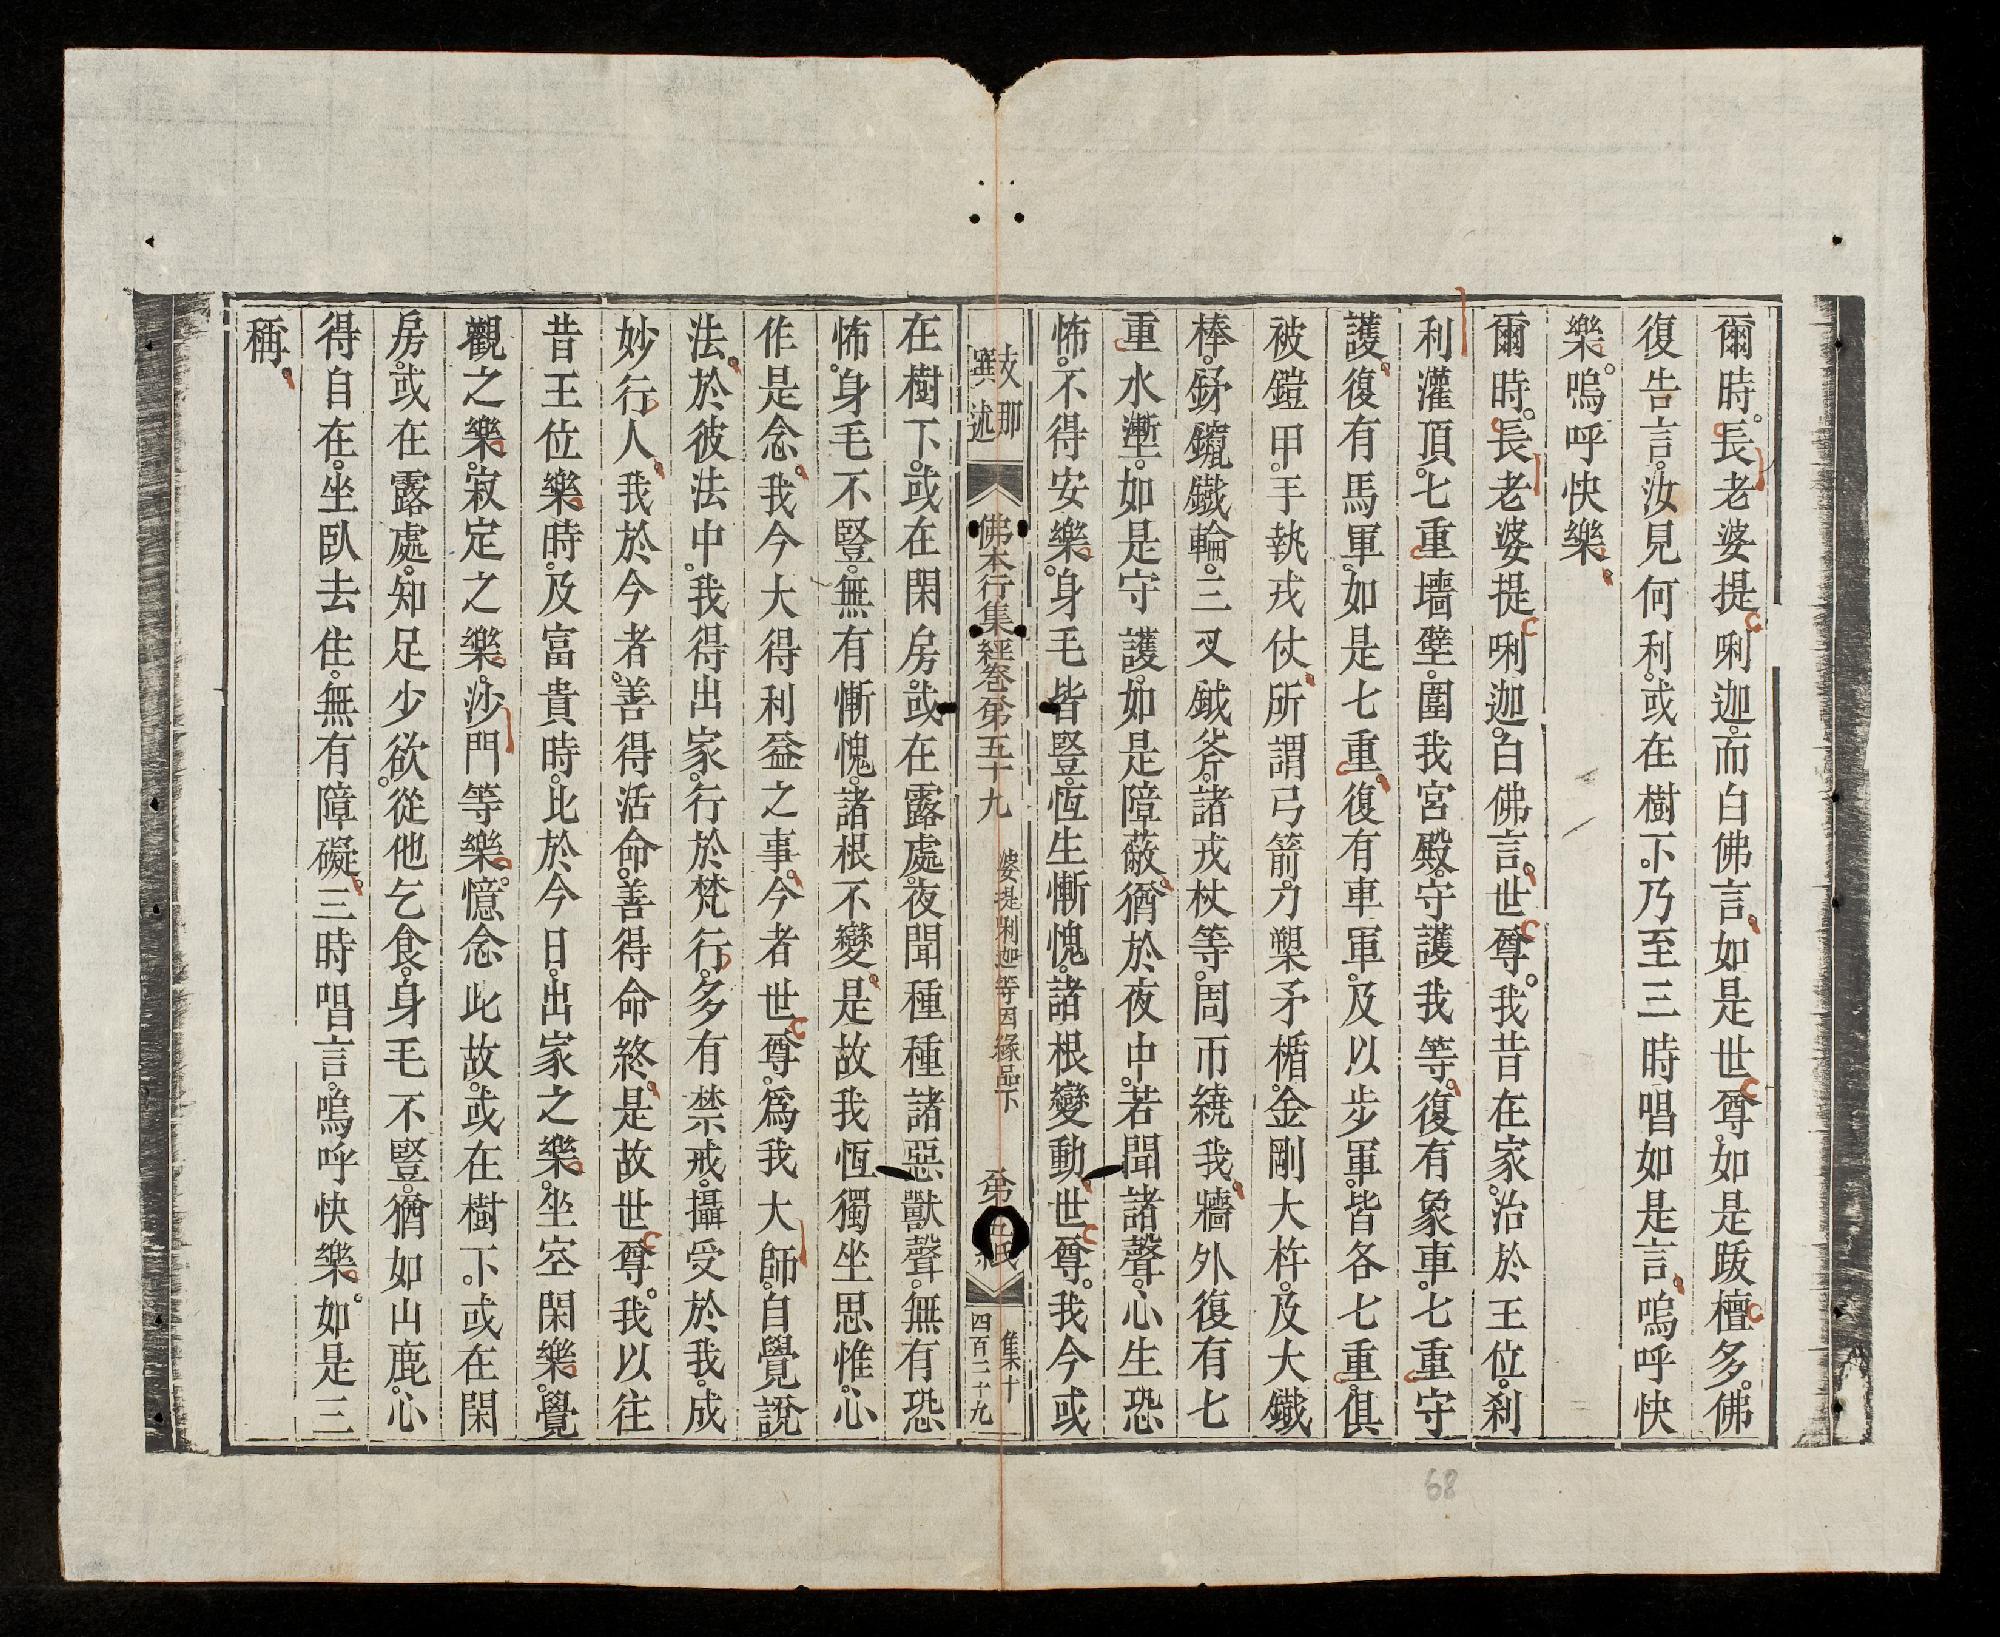 爾時。長老婆提唎迦。而白佛言。如是世尊。如是跋檀多。佛
復告言。汝見何利。或在樹下。乃至三時唱如是言。嗚呼快
樂。嗚呼快樂。
爾時。長老婆提唎迦。白佛言。世尊。我昔在家。治於王位。剎
利灌頂。七重墻壁。圍我宮殿。守護我等。復有象車。七重守
護。復有馬軍。如是七重。復有車軍。及以步軍。皆各七重。俱
被鎧甲。手執戎仗。所謂弓箭。刀槊矛楯。金剛大杵。及大鐵
棒。鎊鑹鐵輪。三叉鉞斧。諸戎杖等。周帀繞我。牆外復有七
重水壍。如是守護。如是障蔽。猶於夜中。若聞諸聲。心生恐
怖。不得安樂。身毛皆豎。恆生慚愧。諸根變動。世尊。我今或
支那
撰述
佛本行集經卷第五十九
婆提唎迦等因緣品下
集十
四百二十九
在樹下。或在閑房。或在露處。夜聞種種諸惡獸聲。無有恐
怖。身毛不豎。無有慚愧。諸根不變。是故我恆獨坐思惟。心
作是念。我今大得利益之事。今者世尊。為我大師。自覺說
法。於彼法中。我得出家。行於梵行。多有禁戒。攝受於我。成
妙行人。我於今者。善得活命。善得命終。是故世尊。我以往
昔王位樂時。及富貴時。比於今日。出家之樂。坐空閑樂。覺
觀之樂。寂定之樂。沙門等樂。憶念此故。或在樹下。或在閑
房。或在露處。知足少欲。從他乞食。身毛不豎。猶如山鹿。心
得自在。坐臥去住。無有障礙。三時唱言。嗚呼快樂。如是三
稱。
68